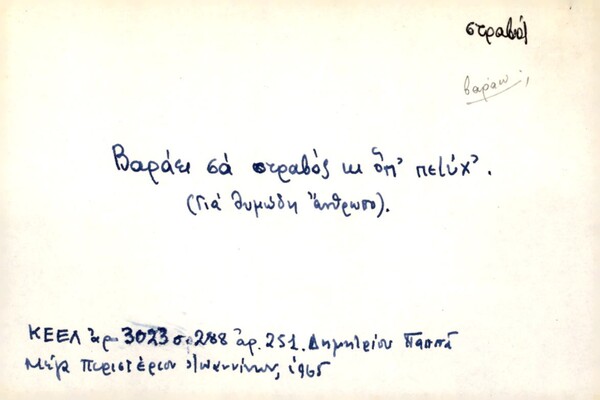 στραβός
βαράω
Βαράει σά στραβός κι ὅπ' πετύχ'.
(Γιά θυμώδη ἄνθρωπο).
ΚΕΕΛ ἀρ. 3023 σ. 288 ἀρ. 251. Δημητρίου Παππᾶ
Μέγα Περιστέριον Ἰωαννίνων, 1965